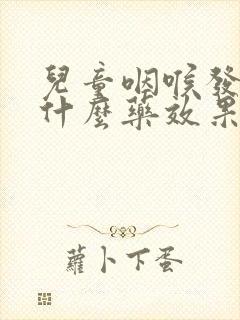 兒童咽喉發
什麼藥效果
蘿卜下蛋